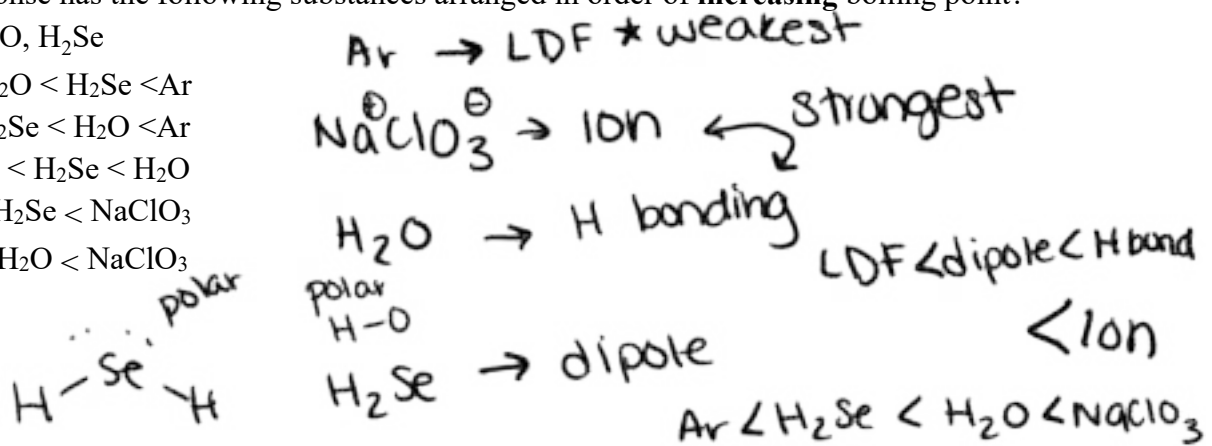 onse has the following substances arranged in order of increasing boiling point?
O, H₂Se
₂O < H₂Se <Ar
₂Se < H₂O <Ar
< H₂Se < H₂O
H₂Se < NaClO₃
H₂O < NaClO₃
Ar → LDF * weakest
Na⊕ClO₃⊖ → Ion ← strongest
H₂O → H bonding
LDF < dipole < H bond
< Ion
polar
polar
H-O
H₂Se → dipole
H - Se - H
Ar < H₂Se < H₂O < NaClO₃